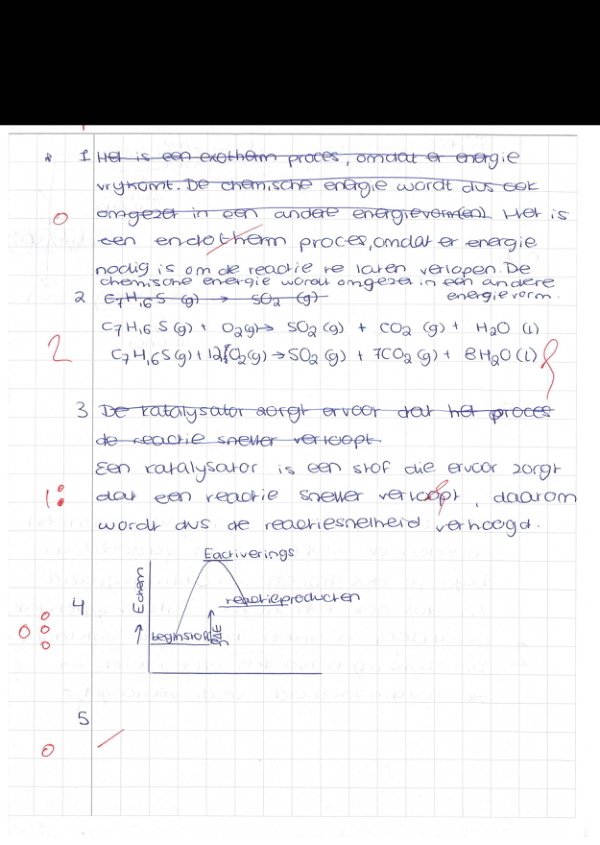 * 1 Het is een exotherm proces, omdat er energie
vrijkomt. De chemische energie wordt dus ook
omgezet in een andere energievorm(en). Het is
0 een endotherm proces, omdat er energie
nodig is om de reactie te laten verlopen. De
chemische energie wordt omgezet in een andere
energievorm.
2 C7H16S (g) → SO2 (g)
C7H16S(g) + O2(g) → SO2(g) + CO2(g) + H2O (l)
2 C7H16S(g) + O2(g) → SO2(g) + 7CO2(g) + 8H2O(l)
3 De katalysator zorgt ervoor dat het proces
de reactie sneller verloopt.
Een katalysator is een stof die ervoor zorgt
1 dat een reactie sneller verloopt, daarom
wordt dus de reactiesnelheid verhoogd.
4
Eactiverings
→ Echem
reactieproducten
beginstof
ΔE
0
0 0
0
5
0